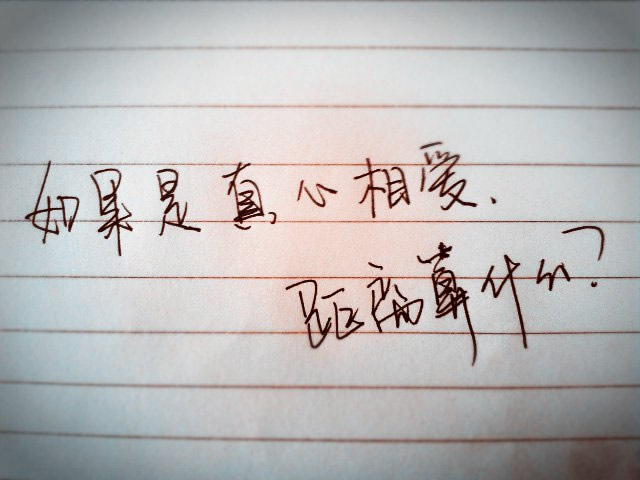 如果是真心相爱.
距离算什么?